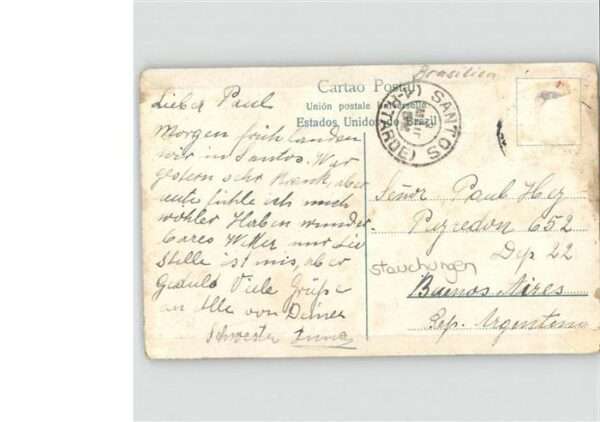 Brasilien
Cartao Postal
Unión postale Universelle
Estados Unidos do Brazil
SANTOS
(TARDE)
Lieber Paul
Morgen früh landen
wir in Santos. War
gestern sehr krank, aber
heute fühle ich mich
wohler Haben wunder
bares Wetter nur die
Stille ist mis, aber
Geduld Viele Grüße
an Alle von Deiner
Schwester Anna
Señor Paul Hey
Puyredon 652
Dep 22
stauchungen
Buenos Aires
Rep. Argentina